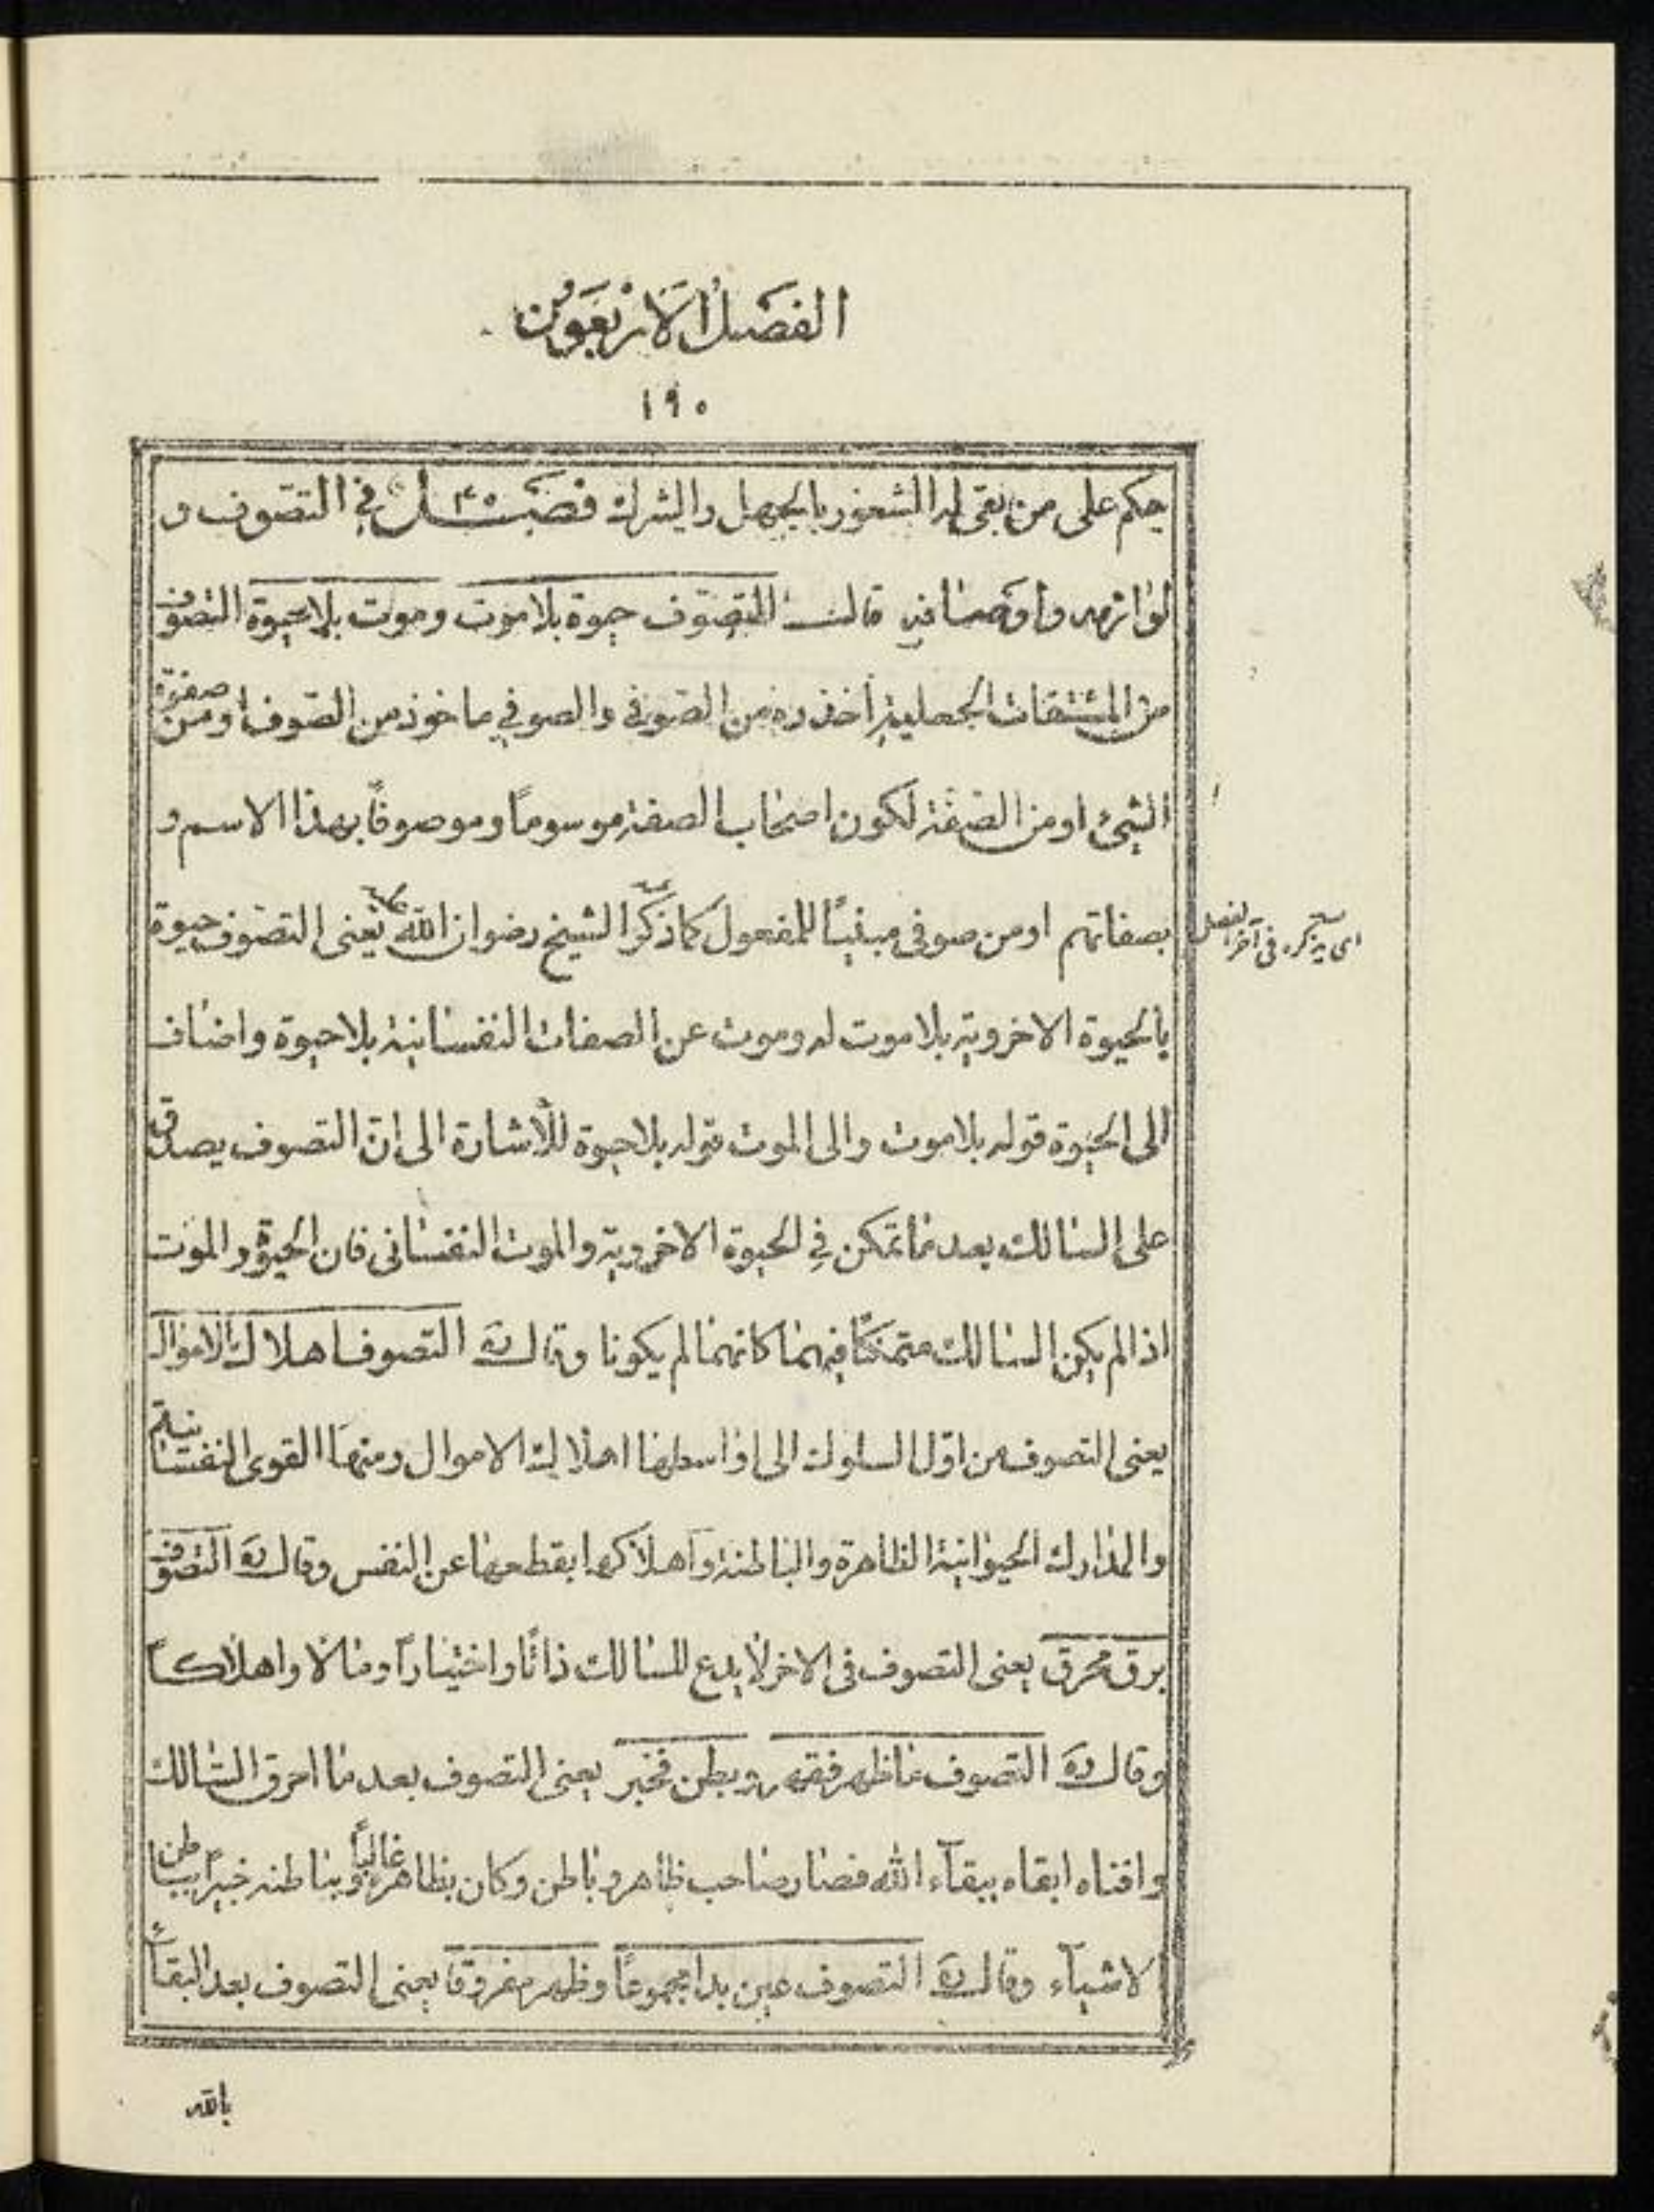 الفَصَلُ الاَرْبَعَوُن
١٩٠
حكم على من بقى له الشعور بالجهل والشرك فصــل ٤٠ فى التصوف و
لوازمه واوصافه قالــ التصوف حيوة بلا موت وموت بلا حيوة التصوف
من المشتقات الجعلية أخذ ره من الصوفى والصوفي ماخوذ من الصوف او من صفوة
الشئ او من الصفة لكون اصحاب الصفة موسومًا وموصوفًا بهذا الاسم و
بصفاتهم او من صوفى مبنيًا للمفعول كما ذكر الشيخ رضوان الله يعنى التصوف حيوة
اى سيذكره فى آخر الفصل
بالحيوة الاخروية بلا موت له وموت عن الصفات النفسانية بلا حيوة واضاف
الى الحيوة قوله بلا موت والى الموت قوله بلا حيوة للأشارة الى انّ التصوف يصدق
على السالك بعد ما تمكن في الحيوة الاخروية والموت النفسانى فان الحيوة والموت
اذا لم يكن السالك متمكنًا فيهما كانهما لم يكونا وقال ره التصوف اهلاك الاموال
يعنى التصوف من اوّل السلوك الى اواسطها اهلاك الاموال ومنها القوى النفسانية
والمدارك الحيوانية الظاهرة والباطنة واهلاكها بقطعها عن النفس وقال ره التصوف
برق محرق يعنى التصوف فى الاخر لا يدع للسالك ذاتًا واختيارًا ومالا واهلاكــا
وقال ره التصوف ما ظهر فقهر وبطن فخبر يعنى التصوف بعد ما احرق السالك
وافناه ابقاه ببقآء الله فصار صاحب ظاهر وباطن وكان بظاهره غالبًا وبباطنه خبيرًا بباطن
الاشيآء وقال ره التصوف عين بدا مجموعًا وظهر مفروقا يعنى التصوف بعد البقآء
بالله